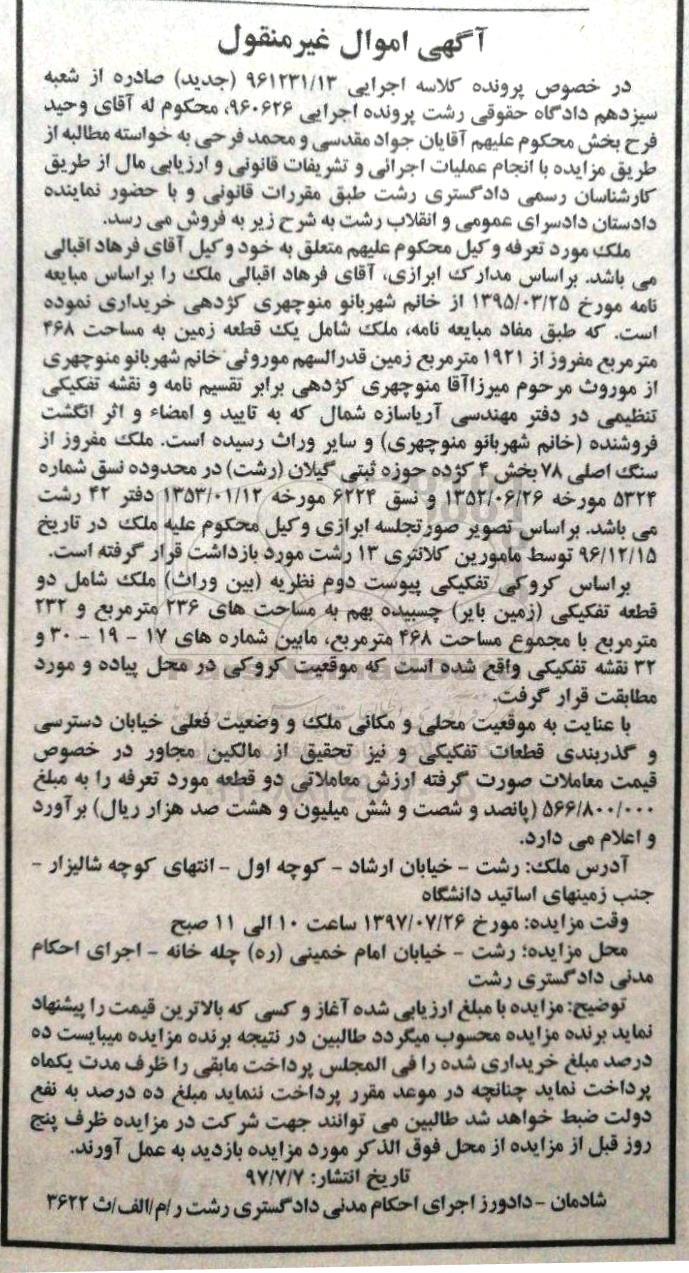 آگهی اموال غیرمنقول
در خصوص پرونده کلاسه اجرایی ۹۶۱۲۳۱/۱۳ (جدید) صادره از شعبه
سیزدهم دادگاه حقوقی رشت پرونده اجرایی ۹۶۰۶۲۶، محکوم له آقای وحید
فرح بخش محکوم علیهم آقایان جواد مقدسی و محمد فرحی به خواسته مطالبه از
طریق مزایده با انجام عملیات اجرائی و تشریفات قانونی و ارزیابی مال از طریق
کارشناسان رسمی دادگستری رشت طبق مقررات قانونی و با حضور نماینده
دادستان دادسرای عمومی و انقلاب رشت به شرح زیر به فروش می رسد.
ملک مورد تعرفه وکیل محکوم علیهم متعلق به خود وکیل آقای فرهاد اقبالی
می باشد. براساس مدارک ابرازی، آقای فرهاد اقبالی ملک را براساس مبایعه
نامه مورخ ۱۳۹۵/۰۳/۲۵ از خانم شهربانو منوچهری کژدهی خریداری نموده
است. که طبق مفاد مبایعه نامه، ملک شامل یک قطعه زمین به مساحت ۴۶۸
مترمربع مفروز از ۱۹۲۱ مترمربع زمین قدرالسهم موروثی خانم شهربانو منوچهری
از موروث مرحوم میرزاآقا منوچهری کژدهی برابر تقسیم نامه و نقشه تفکیکی
تنظیمی در دفتر مهندسی آریاسازه شمال که به تایید و امضاء و اثر انگشت
فروشنده (خانم شهربانو منوچهری) و سایر وراث رسیده است. ملک مفروز از
سنگ اصلی ۷۸ بخش ۴ کژده حوزه ثبتی گیلان (رشت) در محدوده نسق شماره
۵۳۲۴ مورخه ۱۳۵۲/۰۶/۲۶ و نسق ۶۲۲۴ مورخه ۱۳۵۳/۰۱/۱۲ دفتر ۴۲ رشت
می باشد. براساس تصویر صورتجلسه ابرازی وکیل محکوم علیه ملک در تاریخ
۹۶/۱۲/۱۵ توسط مامورین کلانتری ۱۳ رشت مورد بازداشت قرار گرفته است.
براساس کروکی تفکیکی پیوست دوم نظریه (بین وراث) ملک شامل دو
قطعه تفکیکی (زمین بایر) چسبیده بهم به مساحت های ۲۳۶ مترمربع و ۲۳۲
مترمربع با مجموع مساحت ۴۶۸ مترمربع، مابین شماره های ۱۷ - ۱۹ - ۳۰ و
۳۲ نقشه تفکیکی واقع شده است که موقعیت کروکی در محل پیاده و مورد
مطابقت قرار گرفت.
با عنایت به موقعیت محلی و مکانی ملک و وضعیت فعلی خیابان دسترسی
و گذربندی قطعات تفکیکی و نیز تحقیق از مالکین مجاور در خصوص
قیمت معاملات صورت گرفته ارزش معاملاتی دو قطعه مورد تعرفه را به مبلغ
۵۶۶/۸۰۰/۰۰۰ (پانصد و شصت و شش میلیون و هشت صد هزار ریال) برآورد
و اعلام می دارد.
آدرس ملک: رشت - خیابان ارشاد - کوچه اول - انتهای کوچه شالیزار -
جنب زمینهای اساتید دانشگاه
وقت مزایده: مورخ ۱۳۹۷/۰۷/۲۶ ساعت ۱۰ الی ۱۱ صبح
محل مزایده: رشت - خیابان امام خمینی (ره) چله خانه - اجرای احکام
مدنی دادگستری رشت
توضیح: مزایده با مبلغ ارزیابی شده آغاز و کسی که بالاترین قیمت را پیشنهاد
نماید برنده مزایده محسوب میگردد طالبین در نتیجه برنده مزایده میبایست ده
درصد مبلغ خریداری شده را فی المجلس پرداخت مابقی را ظرف مدت یکماه
پرداخت نماید چنانچه در موعد مقرر پرداخت ننماید مبلغ ده درصد به نفع
دولت ضبط خواهد شد طالبین می توانند جهت شرکت در مزایده ظرف پنج
روز قبل از مزایده از محل فوق الذکر مورد مزایده بازدید به عمل آورند.
تاریخ انتشار: ۹۷/۷/۷
شادمان - دادورز اجرای احکام مدنی دادگستری رشت ر/م/الف/ث ۳۶۲۲